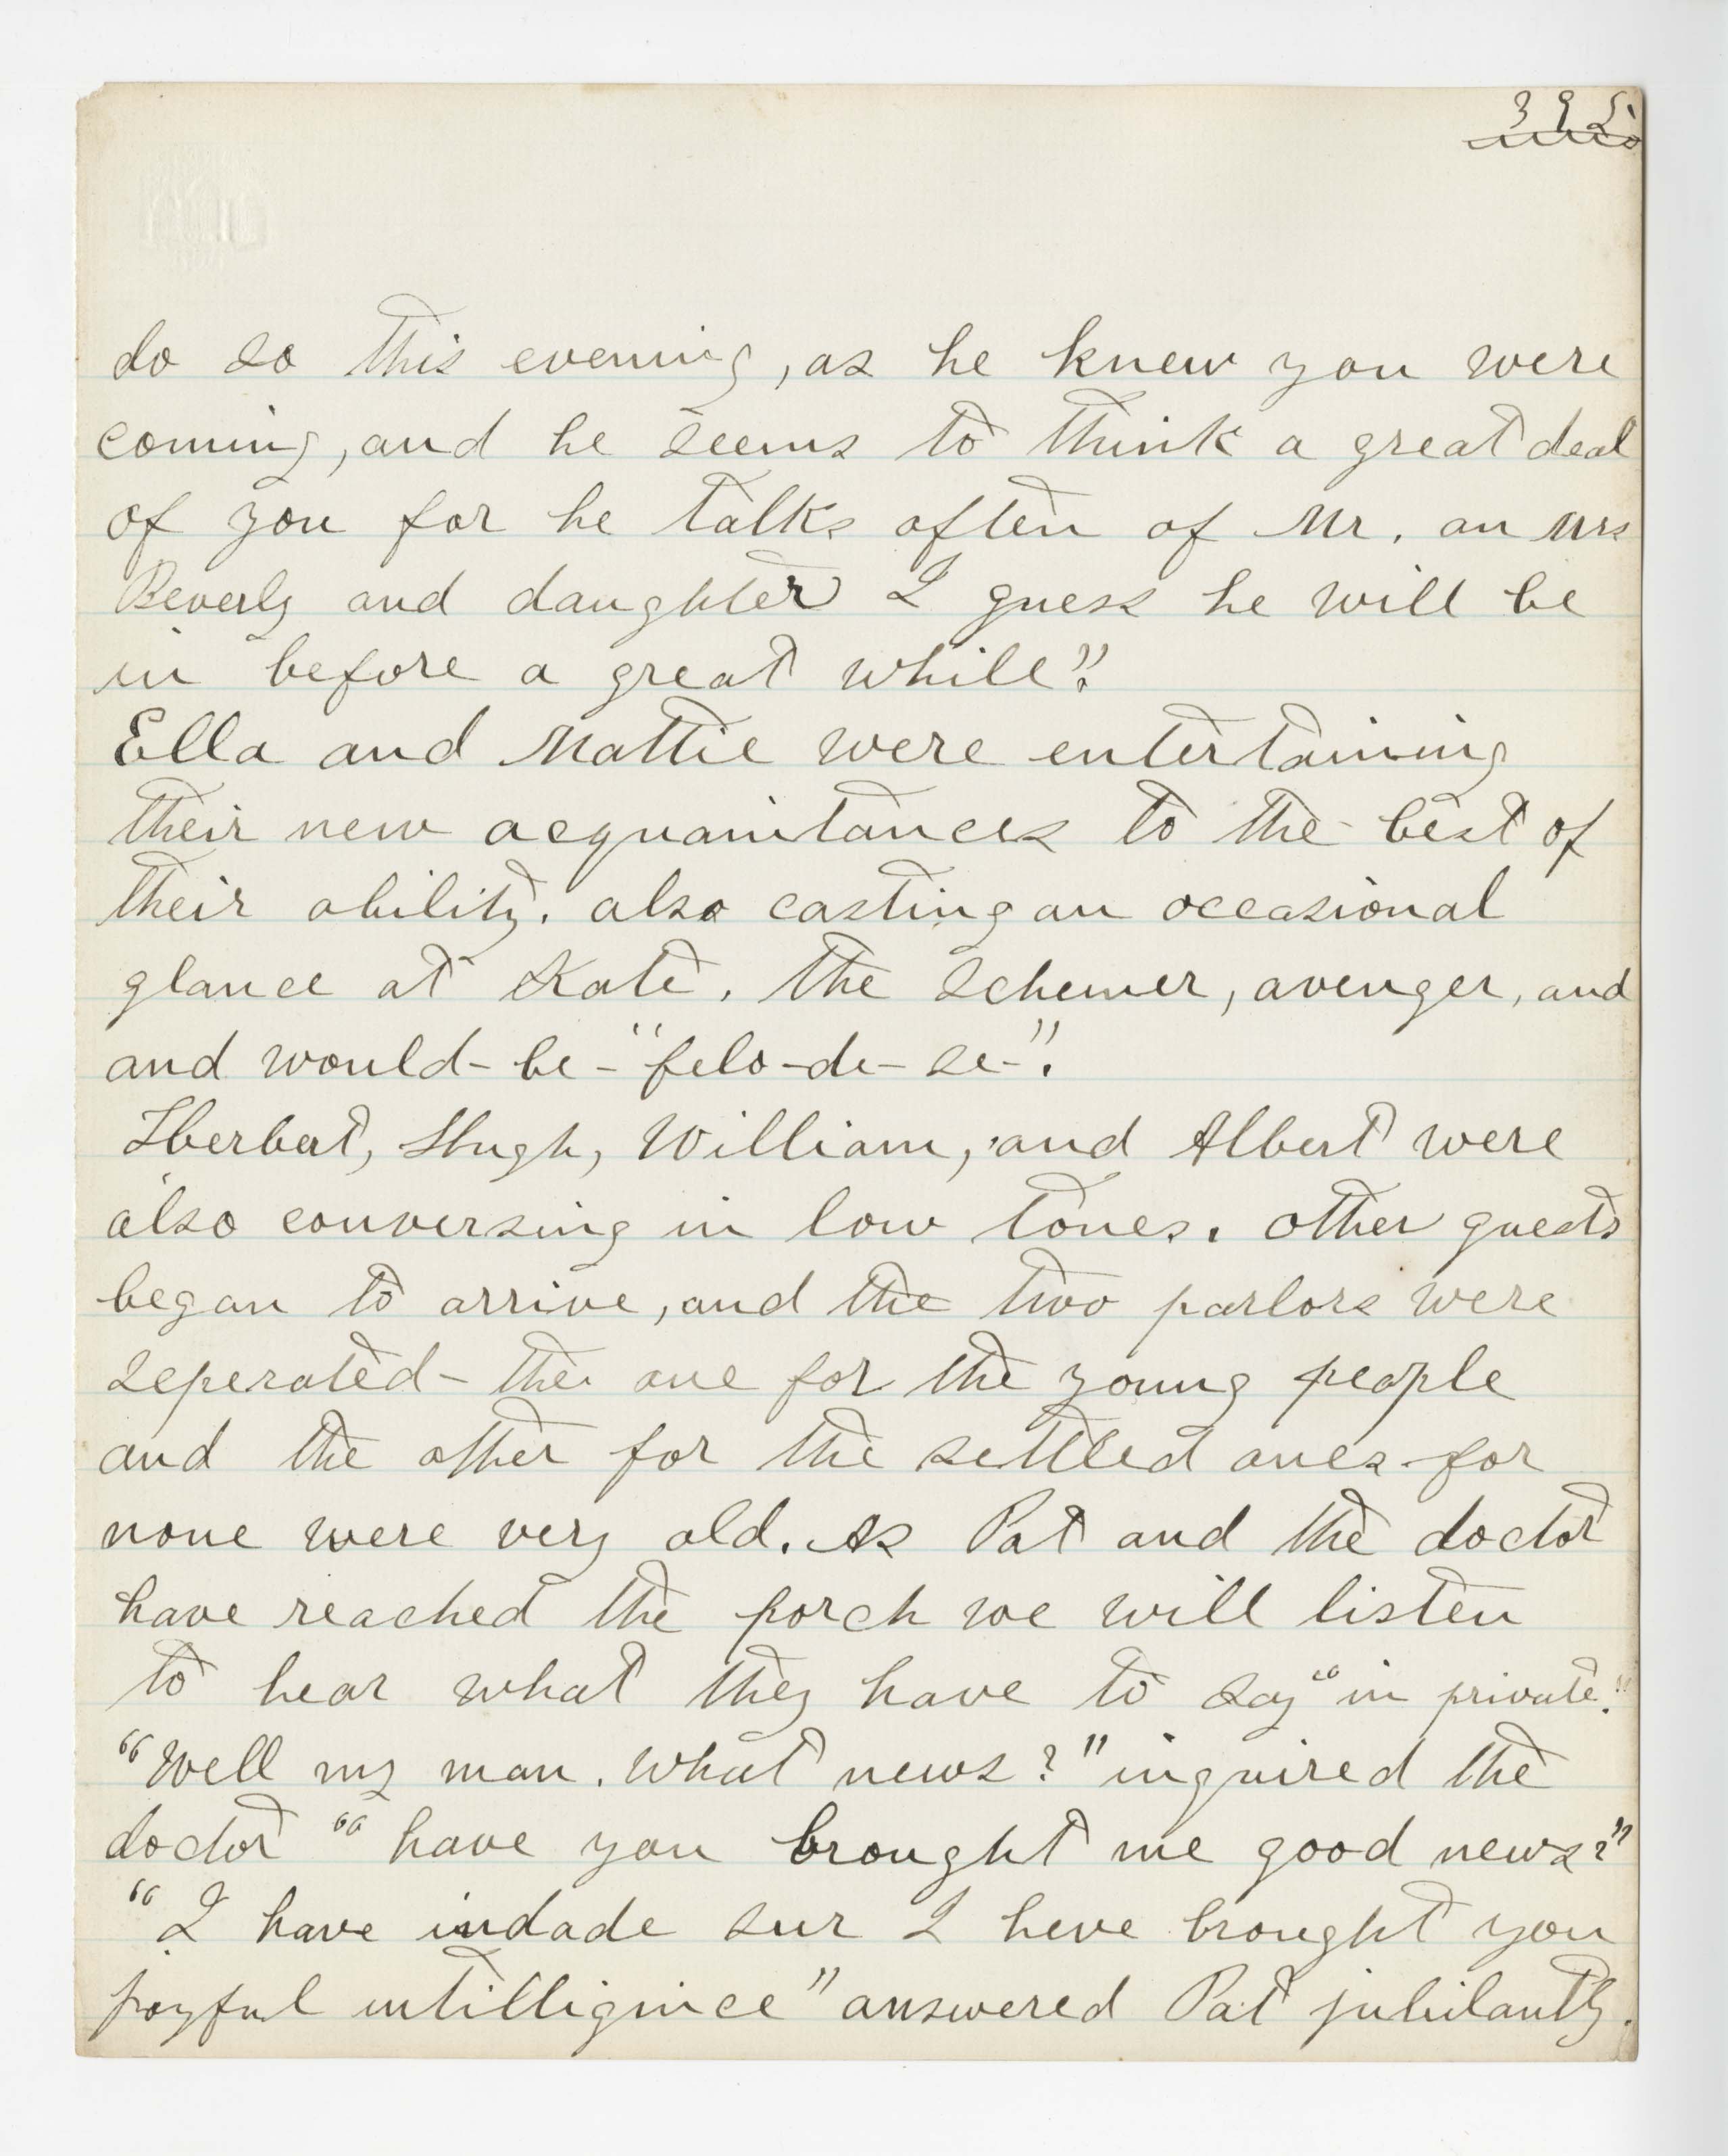 395
do so this evening, as he knew you were
coming, and he seems to think a great deal
of you for he talks often of Mr. an Mrs
Beverly and daughter I guess he will be
in before a great while".
Ella and Mattie were entertaining
their new acquanitances to the best of
their ability. also casting an occasional
glance at Kate. the schemer, avenger, and
and would-be-"felo-de-se-".
Herbert, Hugh, William, and Albert were
also conversing in low tones. other guests
began to arrive, and the two parlors were
seperated- the one for the young people
and the other for the settled ones for
none were very old. As Pat and the doctor
have reached the porch we will listen
to hear what they have to say "in private."
"Well my man. What news?" inquired the
doctor "have you brought me good news?"
"I have indade sur I heve brought you
joyful intilligince" answered Pat jubilantly.